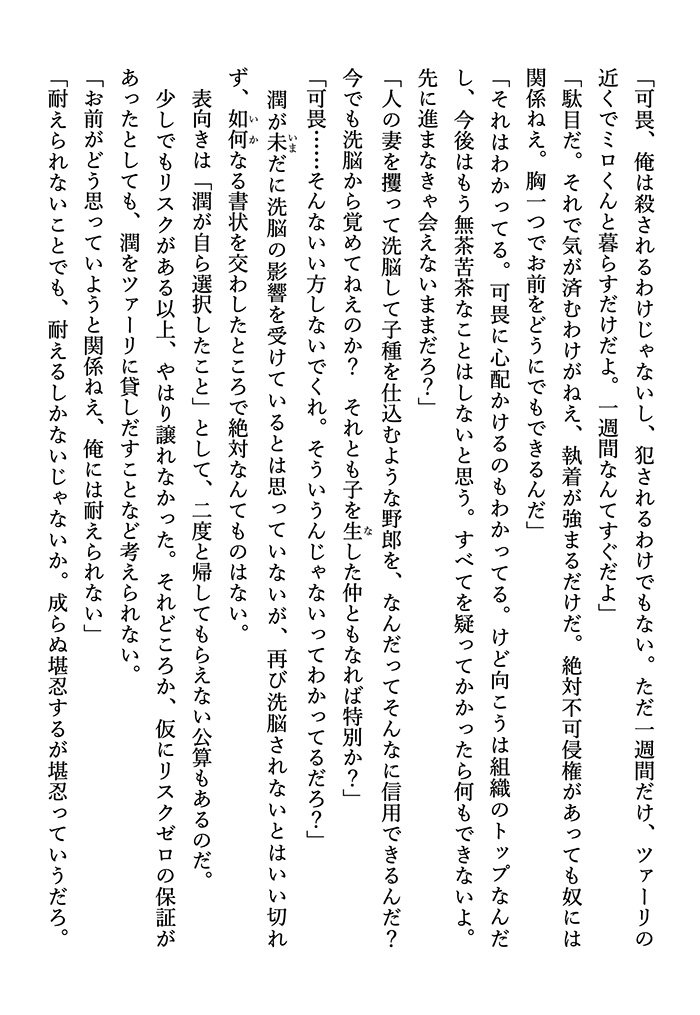 「可畏、俺は殺されるわけじゃないし、犯されるわけでもない。ただ一週間だけ、ツァーリの
近くでミロくんと暮らすだけだよ。一週間なんてすぐだよ」
「駄目だ。それで気が済むわけがねえ、執着が強まるだけだ。絶対不可侵権があっても奴には
関係ねえ。胸一つでお前をどうにでもできるんだ」
「それはわかってる。可畏に心配かけるのもわかってる。けど向こうは組織のトップなんだ
し、今後はもう無茶苦茶なことはしないと思う。すべてを疑ってかかったら何もできないよ。
先に進まなきゃ会えないままだろ？」
「人の妻を攫って洗脳して子種を仕込むような野郎を、なんだってそんなに信用できるんだ？
今でも洗脳から覚めてねえのか？　それとも子を生した仲ともなれば特別か？」
「可畏……そんないい方しないでくれ。そういうんじゃないってわかってるだろ？」
　潤が未だに洗脳の影響を受けているとは思っていないが、再び洗脳されないとはいい切れ
ず、如何なる書状を交わしたところで絶対なんてものはない。
　表向きは「潤が自ら選択したこと」として、二度と帰してもらえない公算もあるのだ。
　少しでもリスクがある以上、やはり譲れなかった。それどころか、仮にリスクゼロの保証が
あったとしても、潤をツァーリに貸しだすことなど考えられない。
「お前がどう思っていようと関係ねえ、俺には耐えられない」
「耐えられないことでも、耐えるしかないじゃないか。成らぬ堪忍するが堪忍っていうだろ。